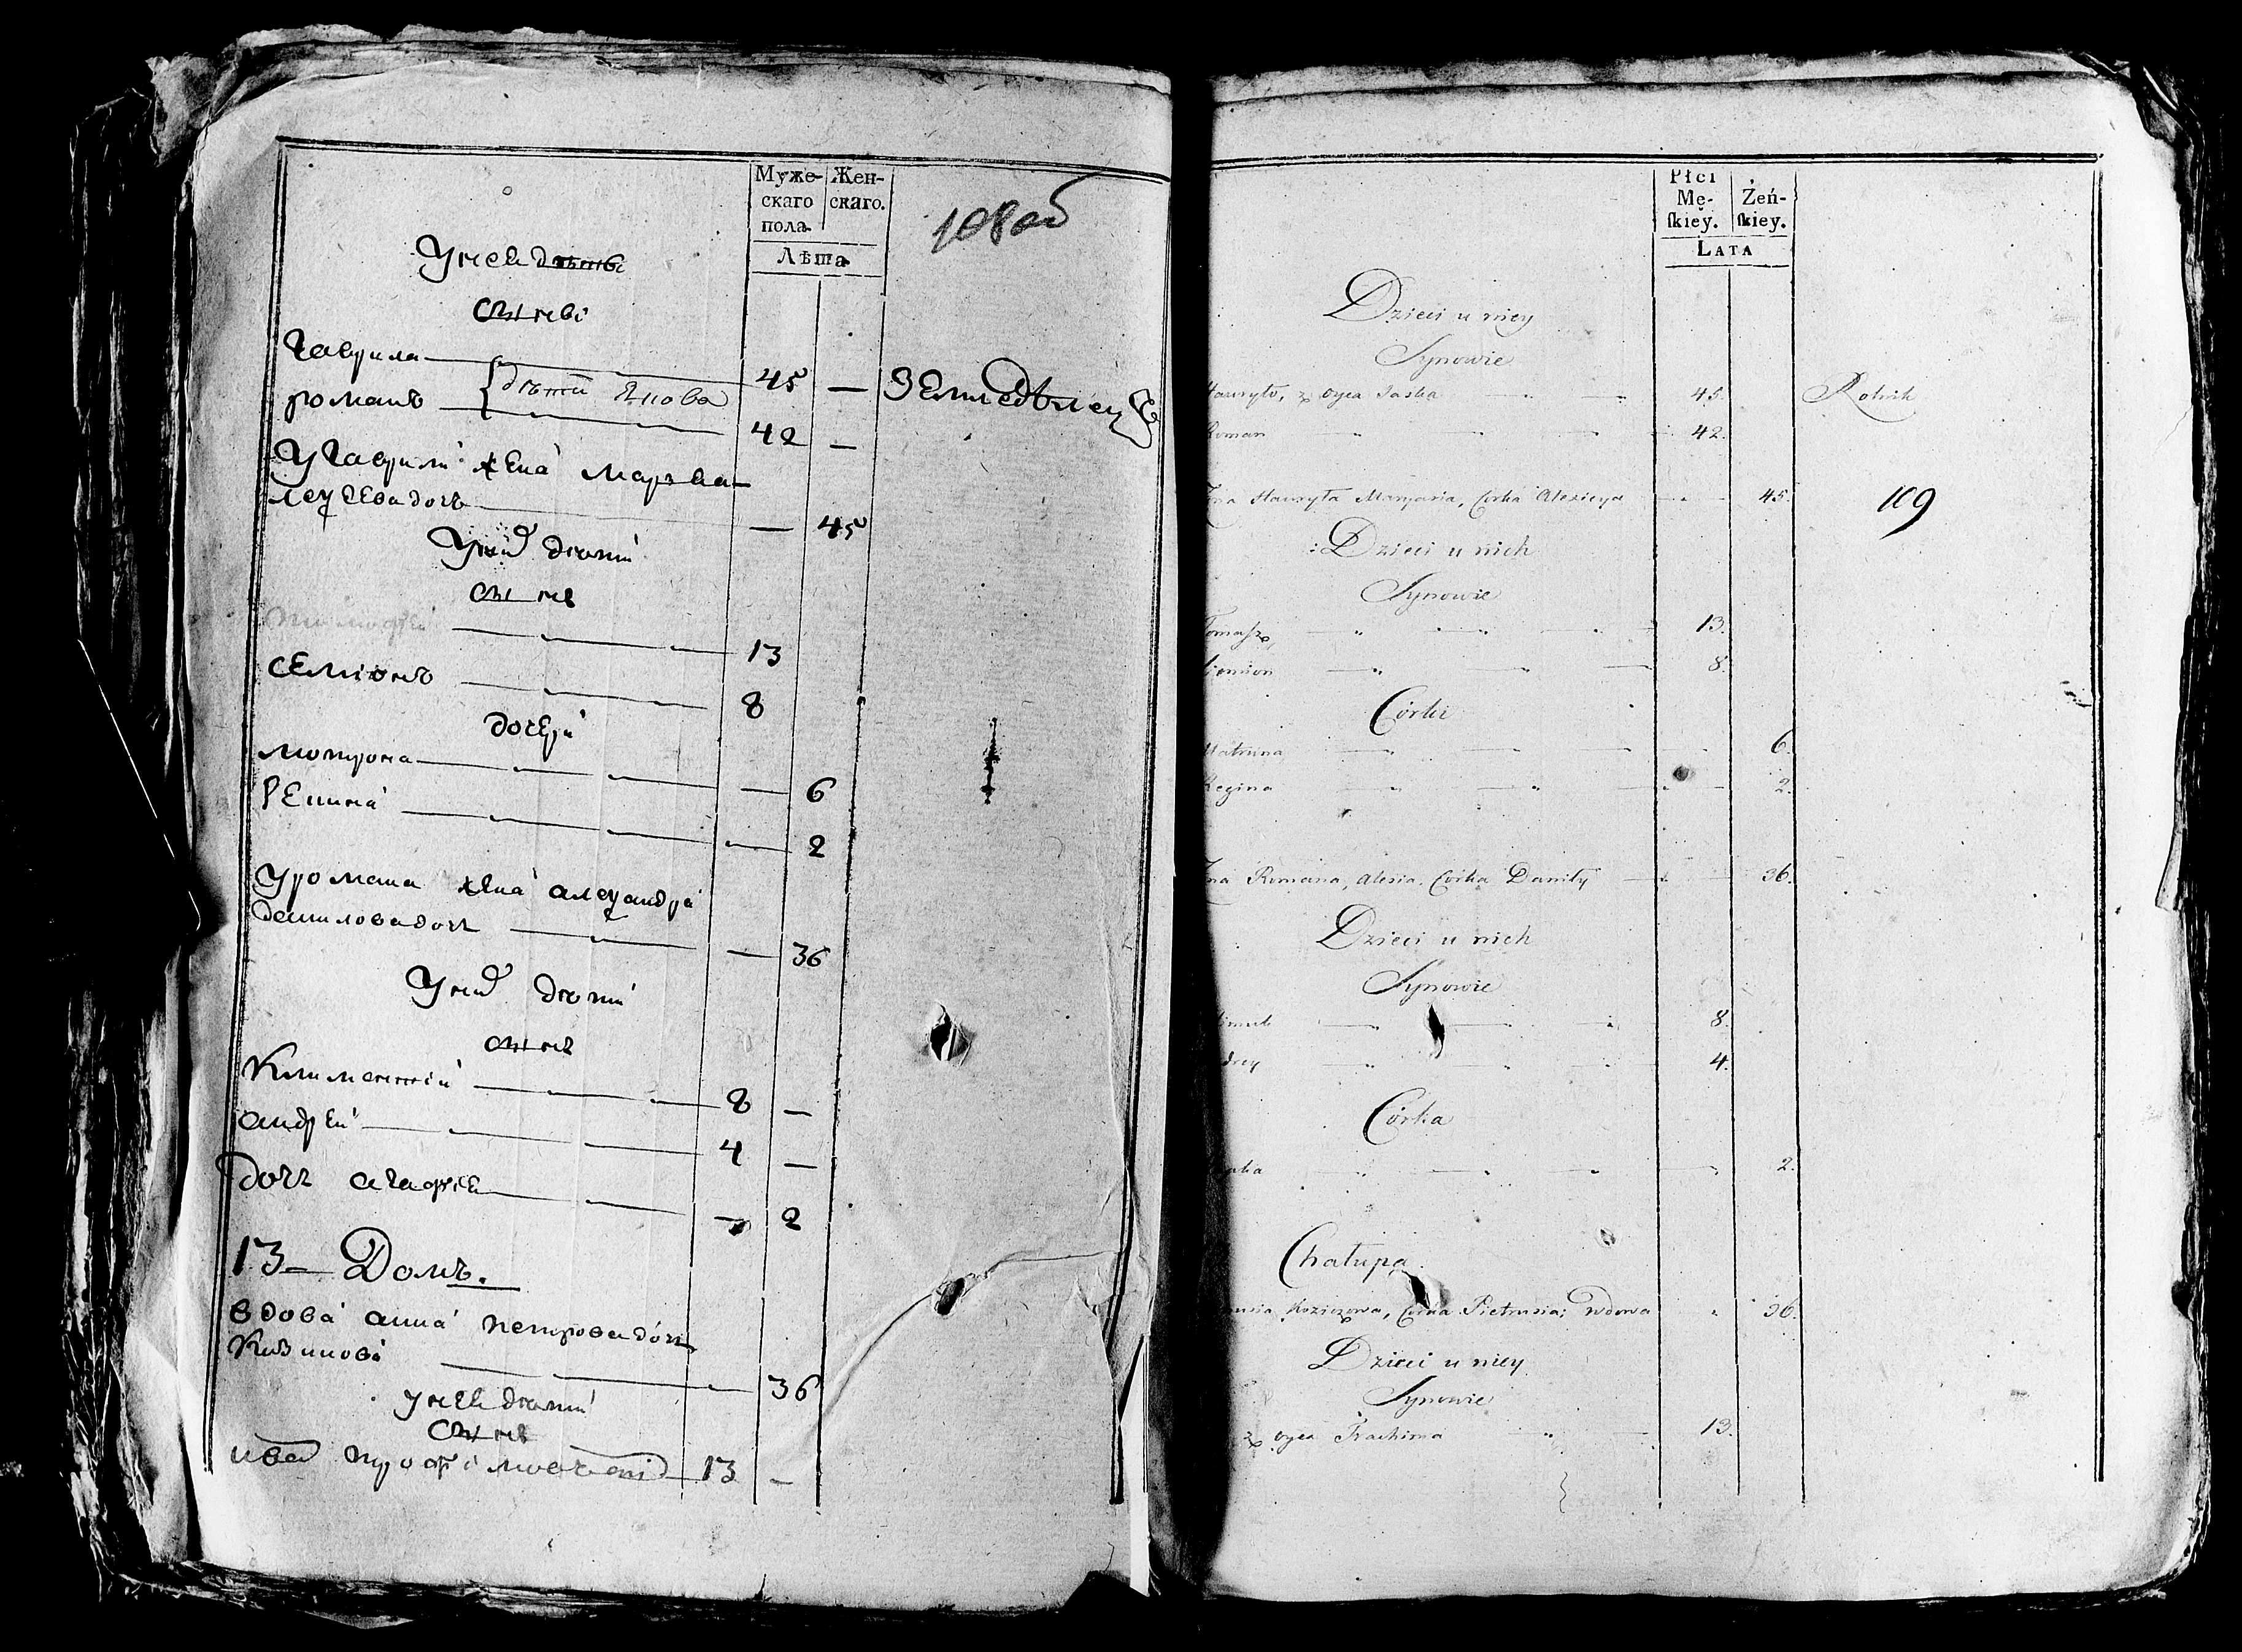 Муже-
скаго
пола
Жен-
скаго.
Лѣта
108 об
У неи дѣти
сыны
Гаврила 45 — Земледѣлец
Романъ { дѣти Якова 42 —
У Гаврили жена Марья
дочь — 45
У них дети
сыны
13
Семионъ 8
дочери
Мотрона — 6
Регина — 2
У Романа жена Алецандра
Данилова дочь — 36
У них дети
сыны
Климентіи 8 —
Андреи 4 —
дочь Агафия — 2
13 — Домъ.
Вдова Анна Петрова дочь
36
У неи дети
сыны
Иван 13 —
Płci
Mę-
skiey.
Żeń-
skiey.
LATA
Dzieci u niey
Synowie
Hawryło, z oyca Jaśka 45. Rolnik
Roman 42.
Żna Hawryła Maryaria, Corka Alexieya 45.
109
Dzieci u nich
Synowie
Tomasz 13.
Siemion 8.
Córki
Matruna 6.
Regina 2.
Żna Romana, Alesia, Córka Daniły 36.
Dzieci u nich
Synowie
8.
drey 4.
Córka
2.
Chałupa.
Koziczowa, Córka Pietrusia; Wdowa 36.
Dzieci u niey
Synowie
z oyca Trachima 13.